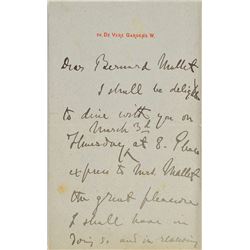 34, DE VERE GARDENS. W.
Dear Bernard Mallet
I shall be delighted
to dine with you on
Thursday March 3d
at 8. Please
express to Mrs Mallet
the great pleasure
I shall have in
doing so and in